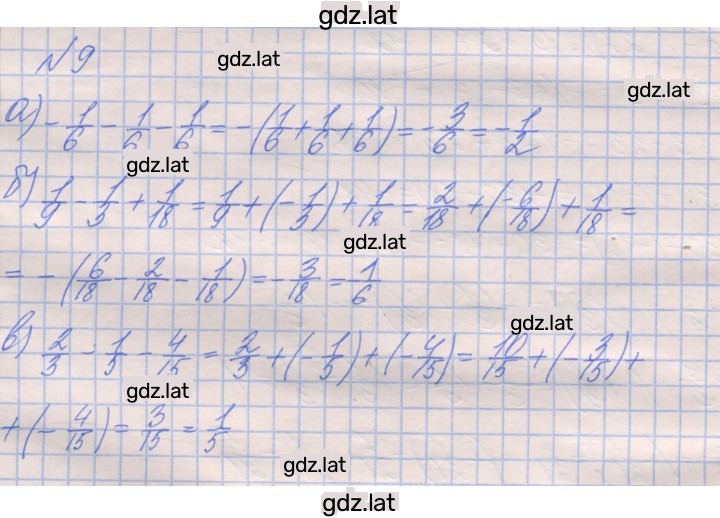 gdz.lat
№9
gdz.lat
gdz.lat
а) - 1/6 - 1/6 - 1/6 = - (1/6 + 1/6 + 1/6) = - 3/6 = - 1/2
gdz.lat
б) 1/9 - 1/3 + 1/18 = 1/9 + (- 1/3) + 1/18 = 2/18 + (- 6/18) + 1/18 =
gdz.lat
= - (6/18 - 2/18 - 1/18) = - 3/18 = 1/6
gdz.lat
в) 2/3 - 1/5 - 4/15 = 2/3 + (- 1/5) + (- 4/15) = 10/15 + (- 3/15) +
gdz.lat
+ (- 4/15) = 3/15 = 1/5
gdz.lat
gdz.lat